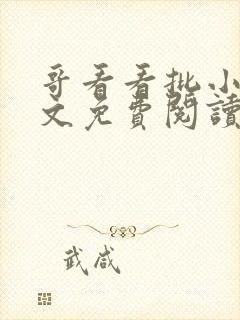 哥看看批小
文免費閱讀
武咸